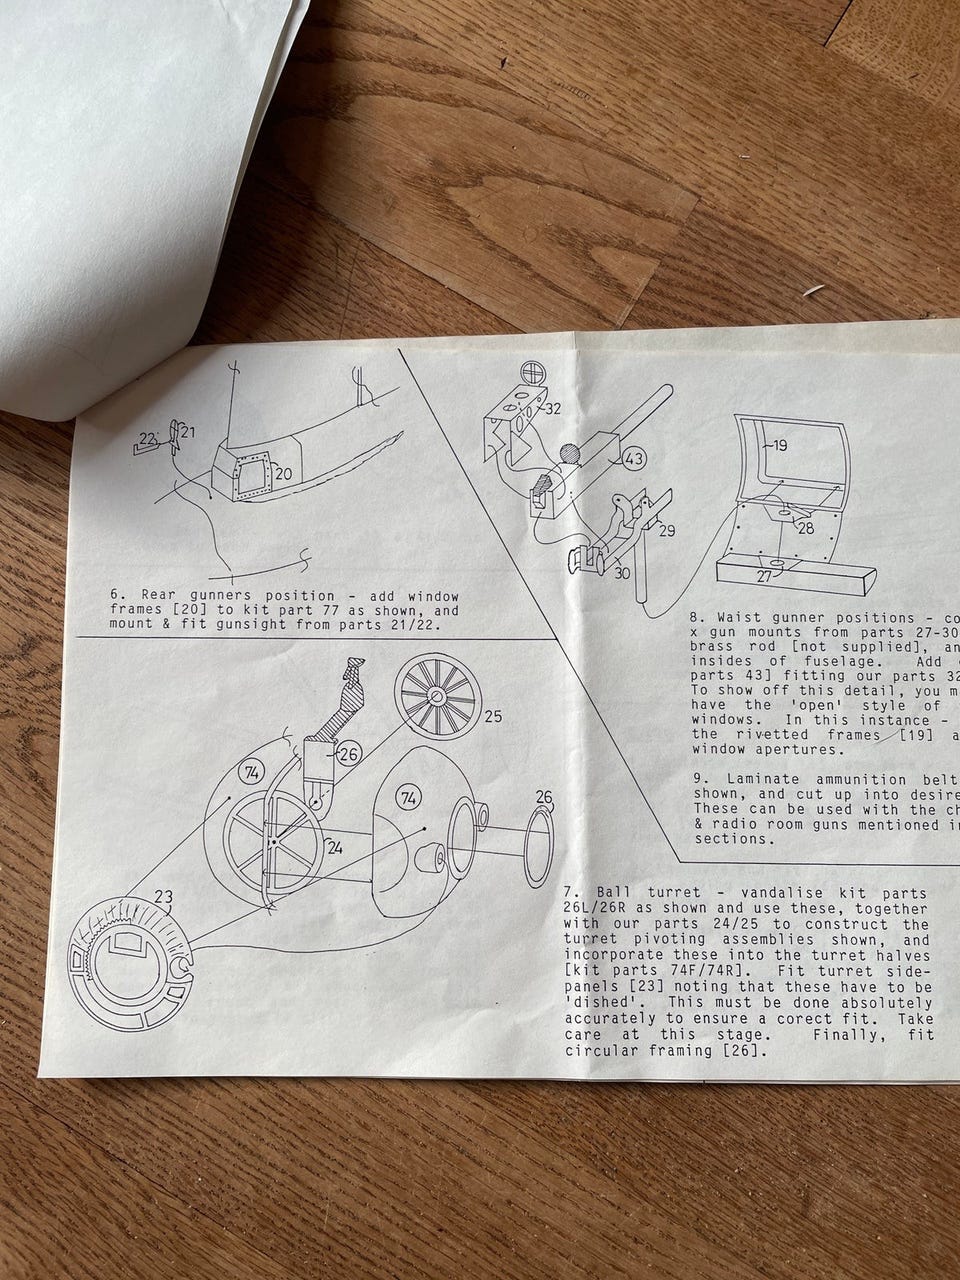 22
21
20
6. Rear gunners position - add window
frames [20] to kit part 77 as shown, and
mount & fit gunsight from parts 21/22.
32
43
29
30
19
28
27
8. Waist gunner positions - co
x gun mounts from parts 27-30
brass rod [not supplied], an
insides of fuselage. Add
parts 43] fitting our parts 32
To show off this detail, you m
have the 'open' style of
windows. In this instance -
the rivetted frames [19] a
window apertures.
9. Laminate ammunition belt
shown, and cut up into desire
These can be used with the ch
& radio room guns mentioned i
sections.
25
26
74
74
24
26
23
7. Ball turret - vandalise kit parts
26L/26R as shown and use these, together
with our parts 24/25 to construct the
turret pivoting assemblies shown, and
incorporate these into the turret halves
[kit parts 74F/74R]. Fit turret side-
panels [23] noting that these have to be
'dished'. This must be done absolutely
accurately to ensure a corect fit. Take
care at this stage. Finally, fit
circular framing [26].